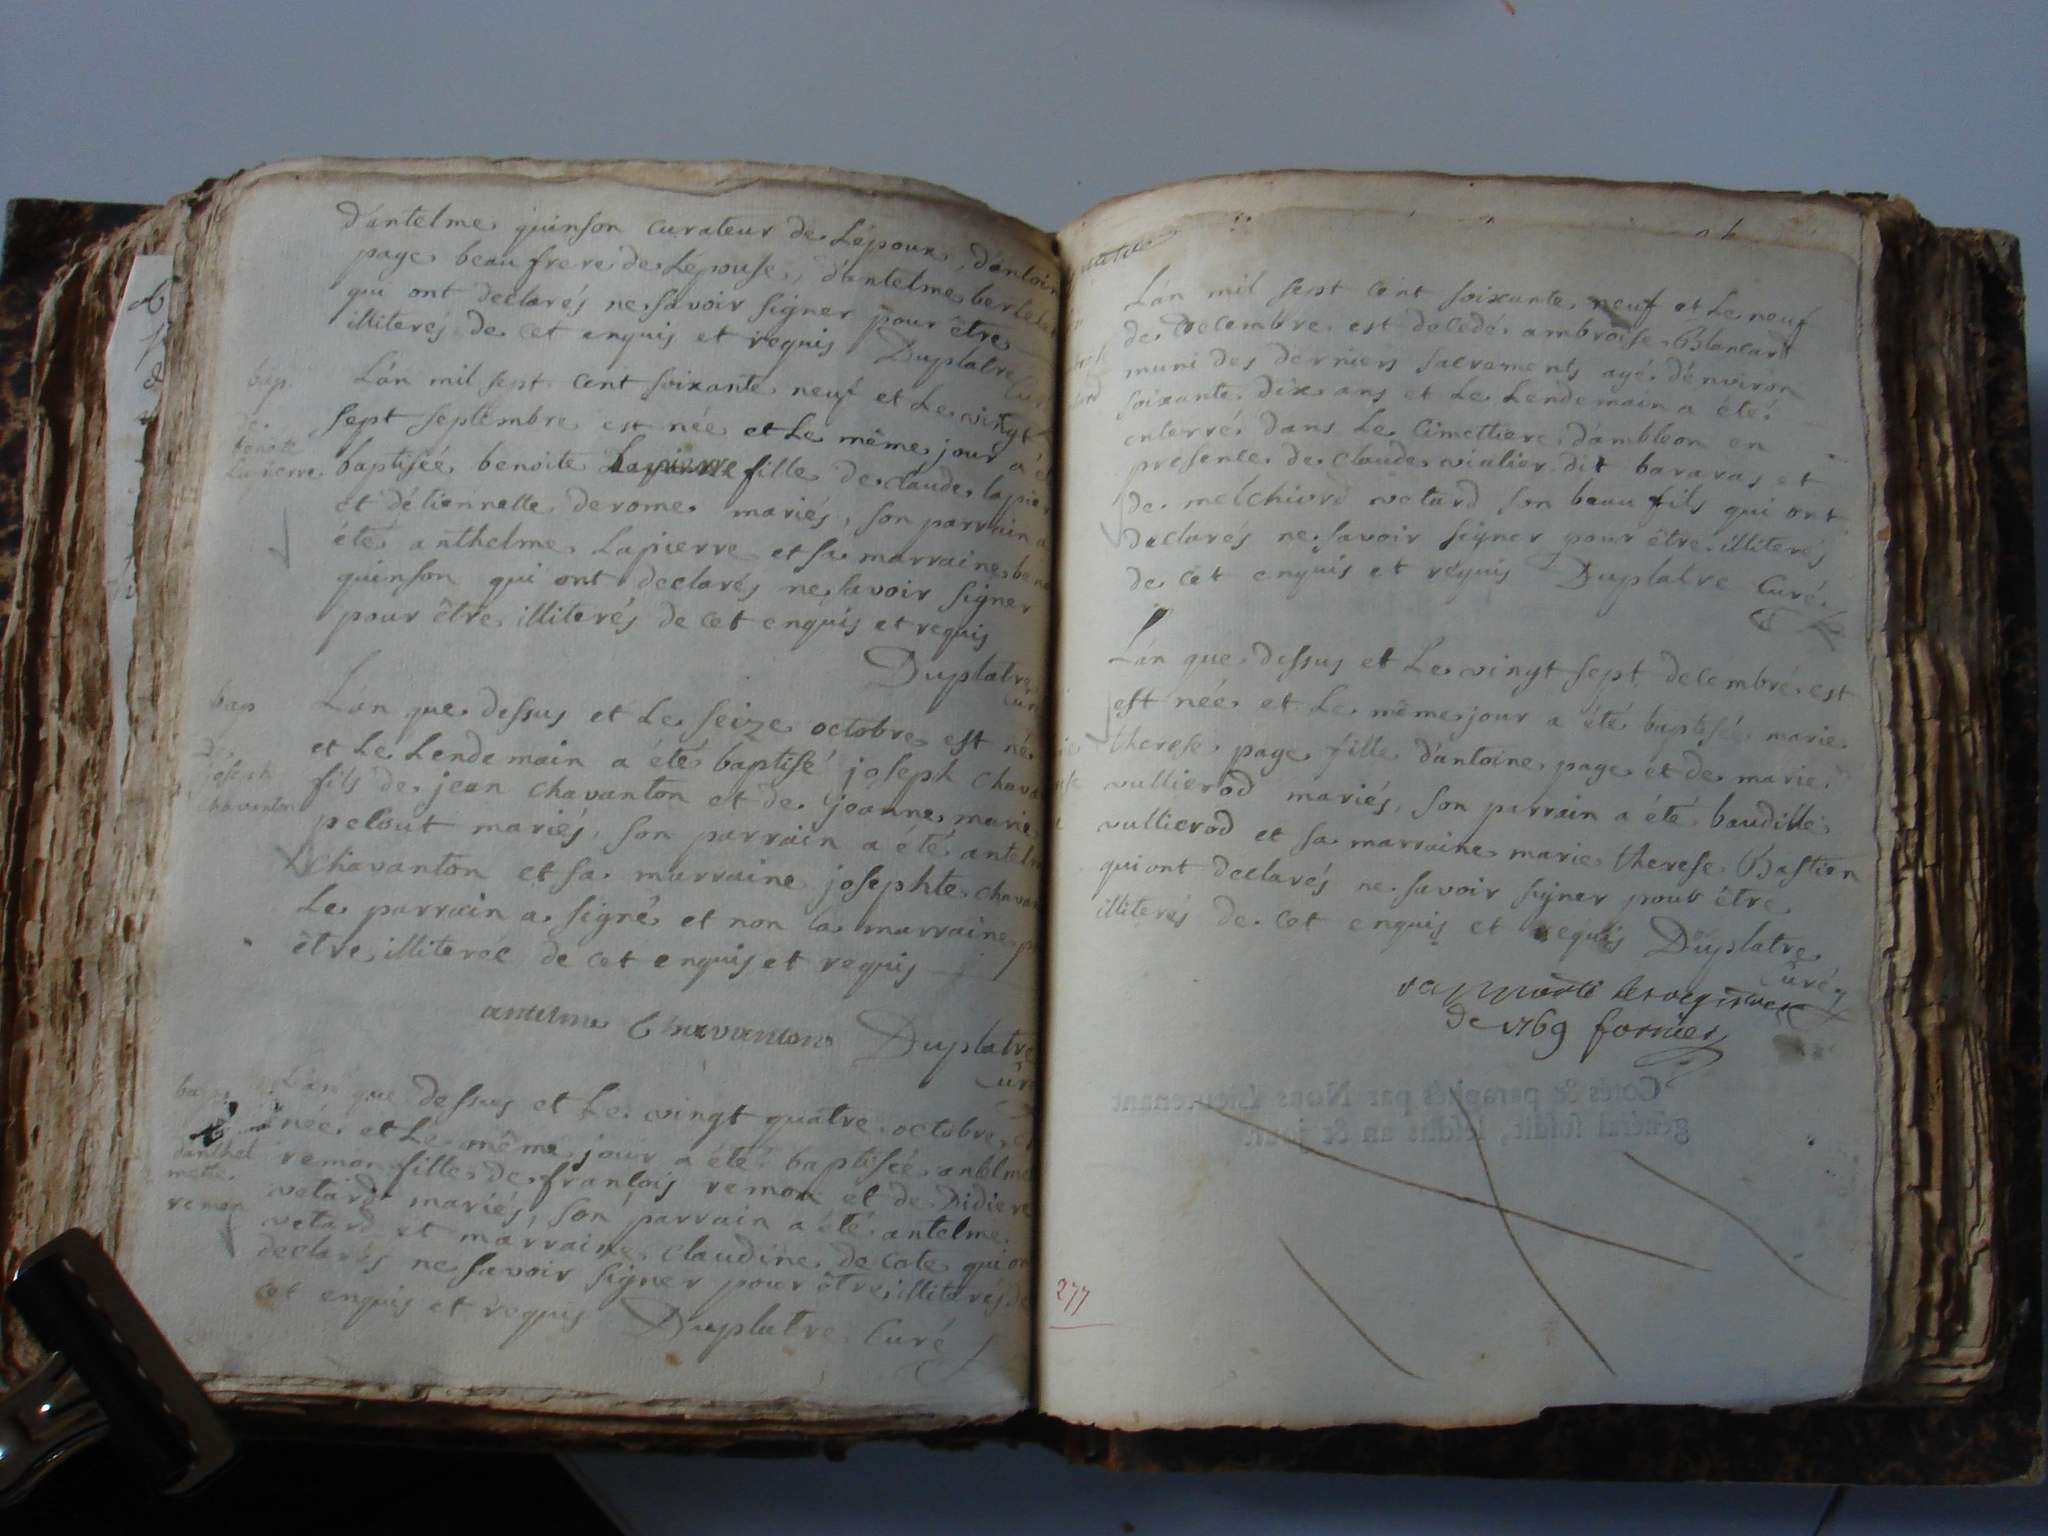 d'antelme quinson curateur de Lépoux, d'antoin
page beau frere de Lépouse, d'antelme
qui ont declarés ne savoir signer pour être
illiterés de cet enquis et requis Duplatre Curé
bap. L'an mil sept cent soixante neuf et Le vingt
sept septembre est née et Le même jour a été
de benoite Lapierre baptisée benoite Lapierre fille de claude lapier
et d'étiennette derome mariés, son parrain a
été anthelme Lapierre et sa marraine beno
quinson qui ont declarés ne savoir signer
pour être illiterés de cet enquis et requis
Duplatre
Curé
bap L'an que dessus et Le seize octobre est né
et Le Lendemain a été baptisé joseph chava
de joseph chavanton fils de jean chavanton et de joanne marie
pelout mariés, son parrain a été antelm
chavanton et sa marraine josephte chavan
Le parrain a signé et non la marraine p
être illiteree de cet enquis et requis
antelme Chavanton Duplatre
Curé
bap L'an que dessus et Le vingt quatre octobre est
née et Le même jour a été baptisée antelme
danthelmette remon remon fille de françois remon et de Didiere
vetard mariés, son parrain a été antelme
vetard et marraine claudine decote qui on
declarés ne savoir signer pour être illiterés de
cet enquis et requis Duplatre Curé
L'an mil sept cent soixante neuf et Le neuf
de decembre est decedé ambroise Blancard
muni des derniers sacrements agé d'environ
soixante dix ans et Le Lendemain a été
enterré dans Le cimettiere d'ambleon en
presence de claude vialier dit bararas et
de melchiord vetard son beau fils qui ont
declarés ne savoir signer pour être illiterés
de cet enquis et requis Duplatre Curé
L'an que dessus et Le vingt sept decembre est
est née et Le même jour a été baptisée marie
therese page fille d'antoine page et de marie
vullierod mariés, son parrain a été baudille
vullierod et sa marraine marie therese Bastien
qui ont declarés ne savoir signer pour être
illiterés de cet enquis et requis Duplatre
Curé
raporté le registre
de 1769 fornier
Cotés & paraphés par Nous Lieutenant
général susdit, lesdits an & jour.
277